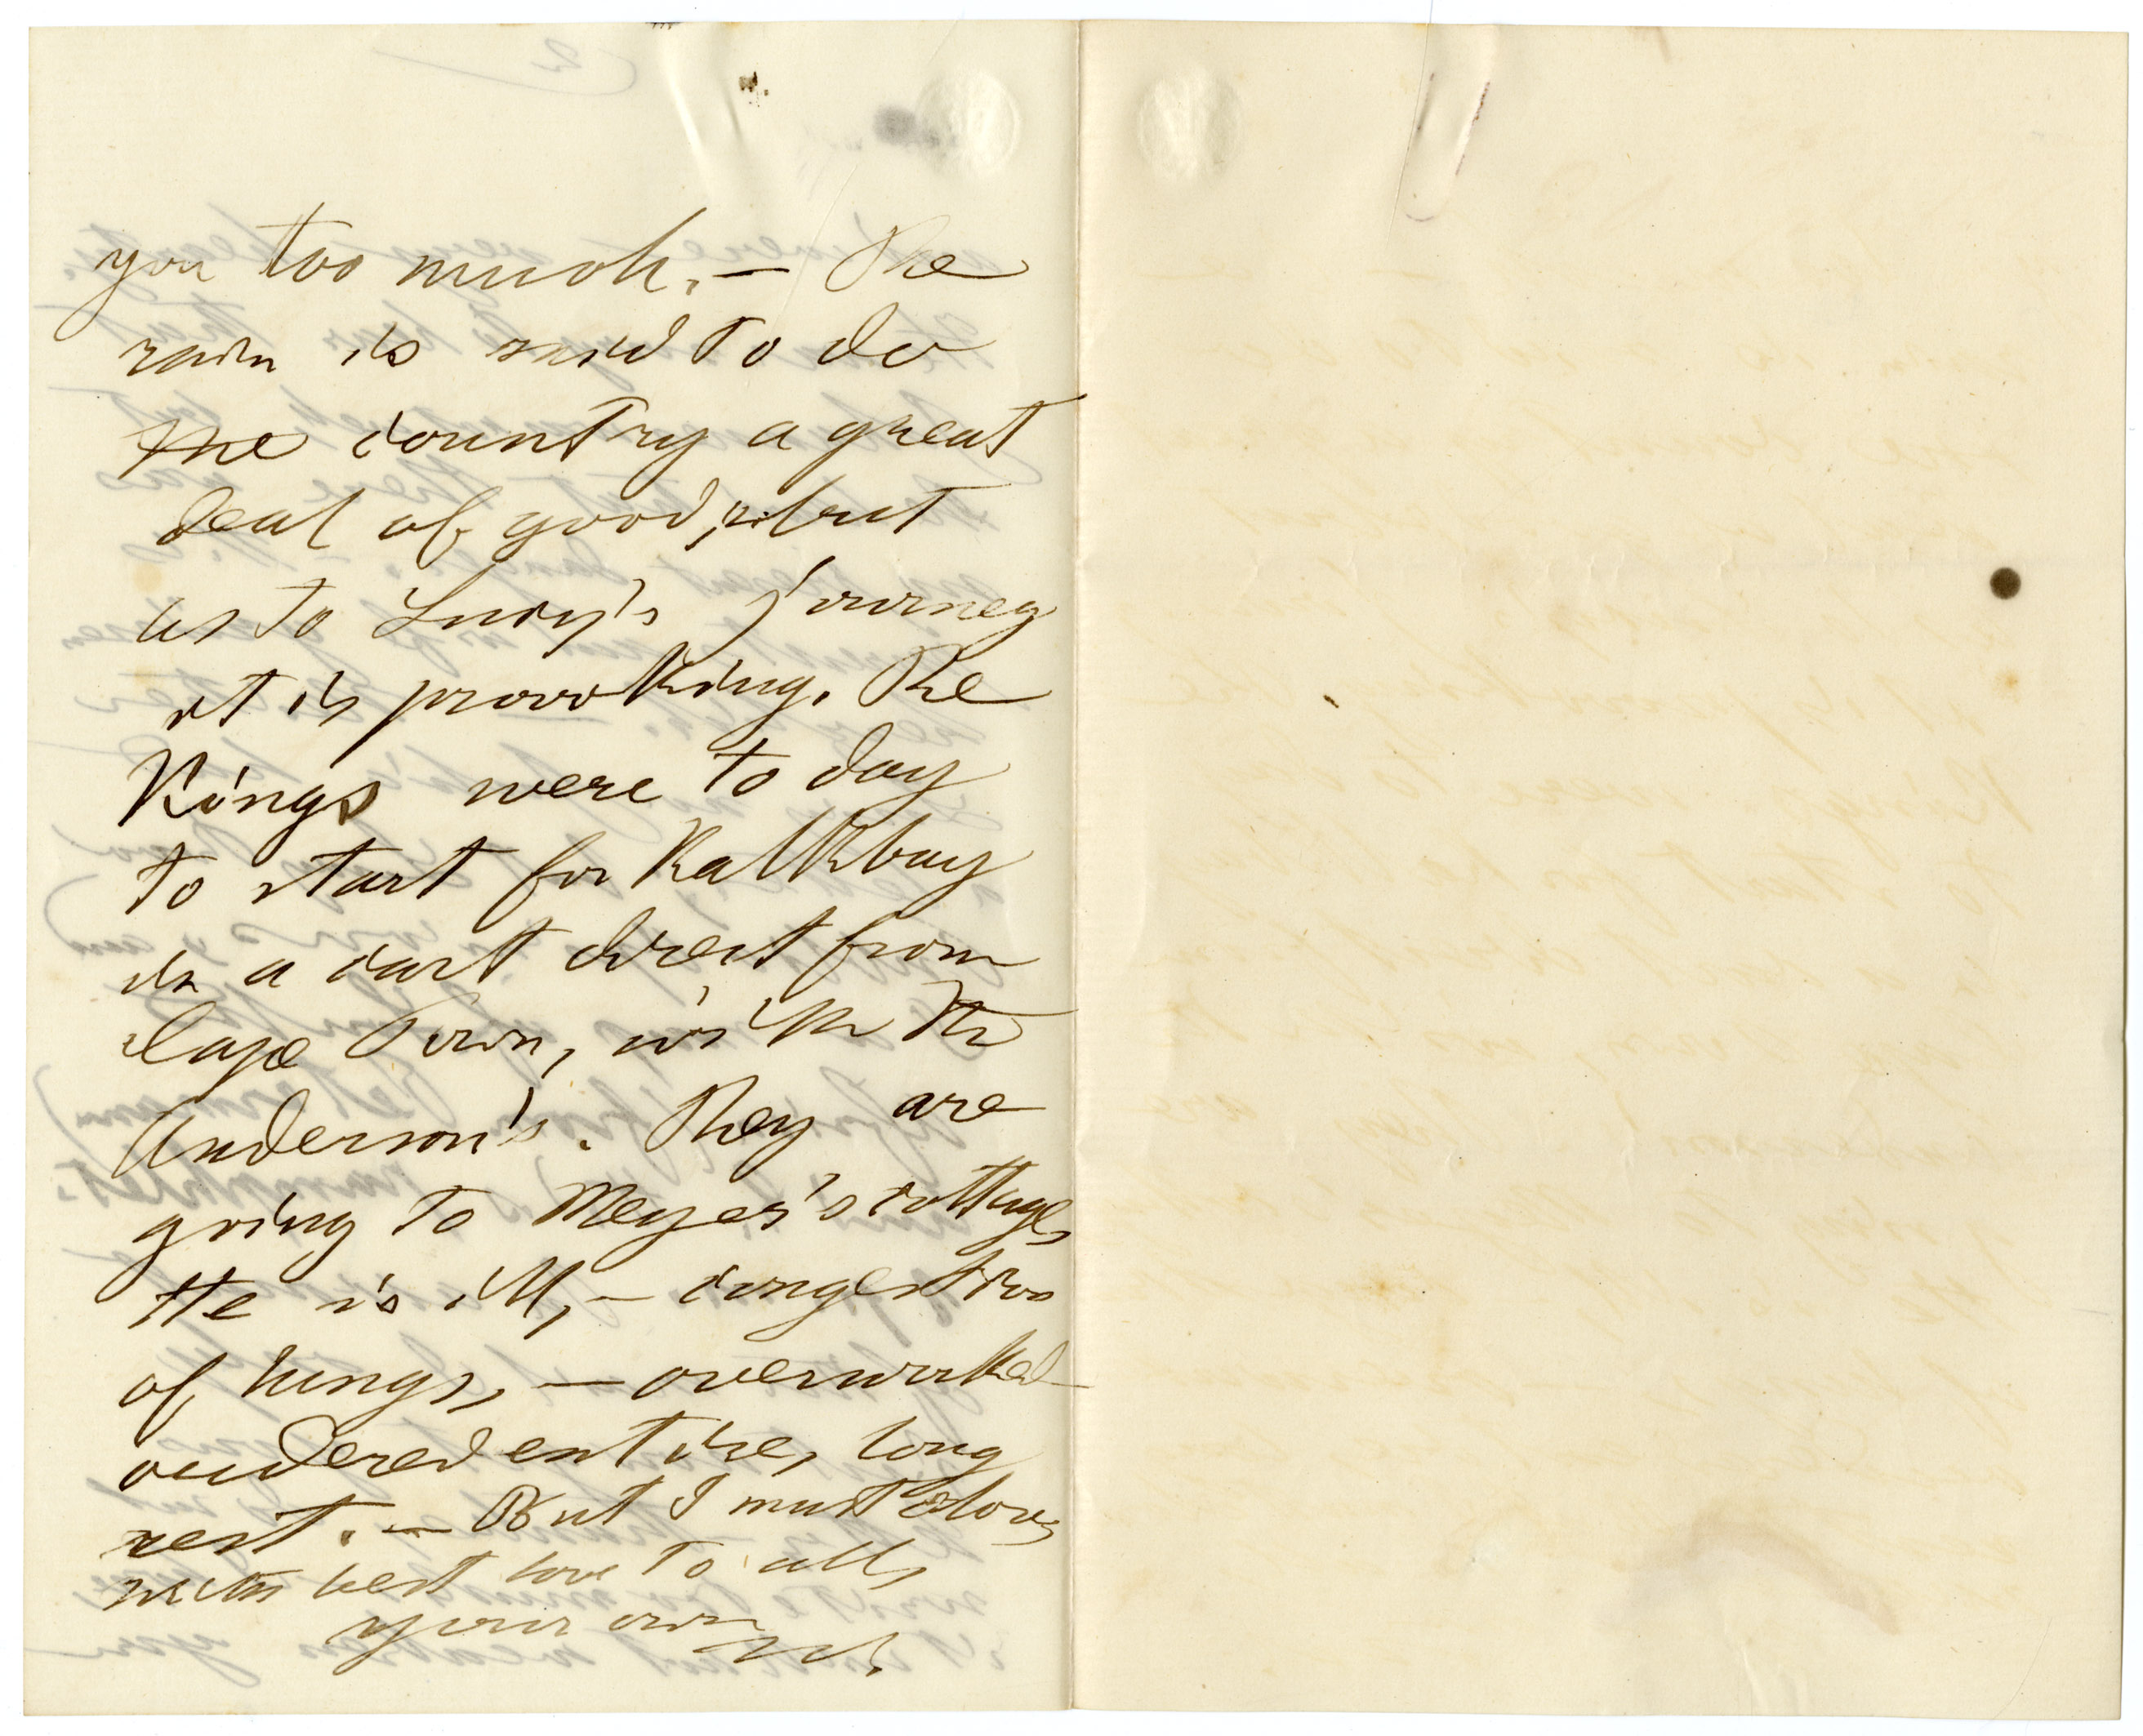 you too much. — The
rain is said to do
the country a great
deal of good, but
as to Lucy's journey
it is provoking. The
Kings were to day
to start for Kalkbay
in a cart direct from
Cape Town, with the
Anderson's. They are
going to Meyer's cottage,
He is ill, — congestion
of lungs, — overworked
ordered entire, long
rest. — But I must close,
with best love to all,
your own